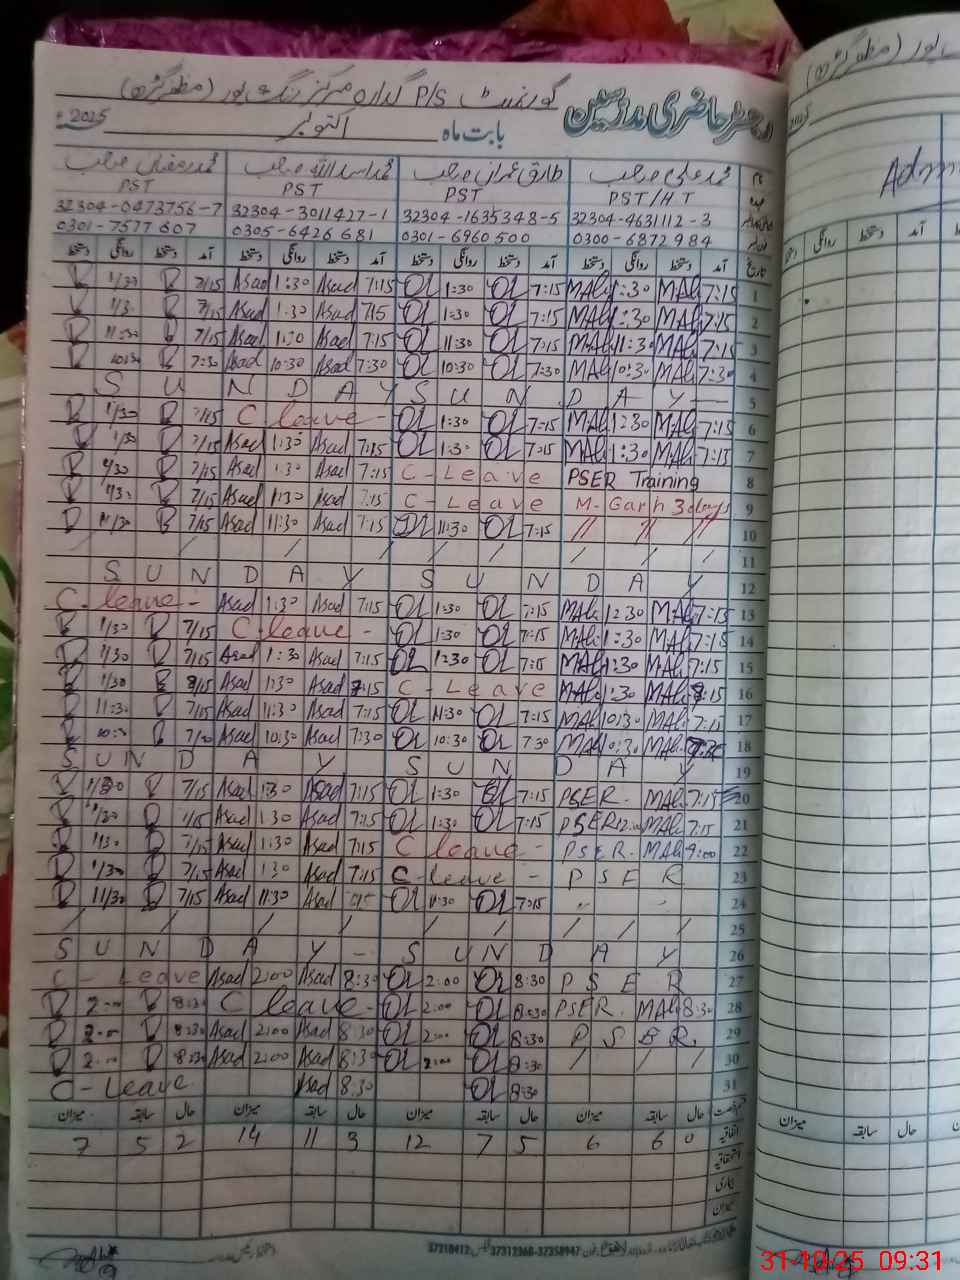 گورنمنٹ P/S گدارہ مرکز رنگ پور (مظفر گڑھ)
رجسٹر حاضری مدرسین بابت ماہ اکتوبر 2025ء
نام محمد علی صاحب طارق عمران صاحب محمد اسد اللہ صاحب محمد رمضان صاحب
PST/HT PST PST PST
32304-4631112-3 32304-1635348-5 32304-3011427-1 32304-0473756-7
0300-6872984 0301-6960500 0305-6426681 0301-7577607
تاریخ آمد دستخط روانگی دستخط آمد دستخط روانگی دستخط آمد دستخط روانگی دستخط آمد دستخط روانگی دستخط
1/30 7/15 Asad 1:30 Asad 7:15 1:30 7:15 MAli 1:30 MAli 7:15 1
1/30 7/15 Asad 1:30 Asad 7:15 1:30 7:15 MAli 1:30 MAli 7:15 2
11:30 7/15 Asad 11:30 Asad 7:15 11:30 7:15 MAli 11:30 MAli 7:15 3
10:30 7:30 Asad 10:30 Asad 7:30 10:30 7:30 MAli 10:30 MAli 7:30 4
S U N D A Y S U N D A Y 5
1/30 7/15 C leave - 1:30 7:15 MAli 1:30 MAli 7:15 6
1/30 7/15 Asad 1:30 Asad 7:15 1:30 7:15 MAli 1:30 MAli 7:15 7
1/30 7/15 Asad 1:30 Asad 7:15 C - Leave PSER Training 8
1/30 7/15 Asad 1:30 Asad 7:15 C - Leave M. Garh 3 days 9
11/30 7/15 Asad 11:30 Asad 7:15 11:30 7:15 // // // 10
/ / / / / / / 11
S U N D A Y S U N D A Y 12
C - leave - Asad 1:30 Asad 7:15 1:30 7:15 MAli 1:30 MAli 7:15 13
1/30 7/15 C - leave - 1:30 7:15 MAli 1:30 MAli 7:15 14
1/30 7/15 Asad 1:30 Asad 7:15 1:30 7:15 MAli 1:30 MAli 7:15 15
1/30 7/15 Asad 1:30 Asad 7:15 C - Leave MAli 1:30 MAli 7:15 16
11:30 7/15 Asad 11:30 Asad 7:15 11:30 7:15 MAli 10:30 MAli 7:15 17
Asad 10:30 Asad 7:30 10:30 7:30 MAli 10:30 MAli 18
S U N D A Y S U N D A Y 19
1/30 7/15 Asad 1:30 Asad 7:15 1:30 7:15 PSER - MAli 7:15 20
1/30 7/15 Asad 1:30 Asad 7:15 1:30 7:15 PSER MAli 7:15 21
1/30 7/15 Asad 1:30 Asad 7:15 C leave - PSER - MAli 9:00 22
1/30 7/15 Asad 1:30 Asad 7:15 C - leave - P S E R 23
11/30 7/15 Asad 11:30 Asad 11:30 7:15 〃 〃 24
/ / / / / / / / 25
S U N D A Y - S U N D A Y 26
C - Leave Asad 2:00 Asad 8:30 2:00 8:30 P S E R 27
2:00 8:30 C leave - 2:00 8:30 PSER - MAli 8:30 28
2:00 8:30 Asad 2:00 Asad 8:30 2:00 8:30 P S E R. 29
2:00 8:30 Asad 2:00 Asad 8:30 2:00 8:30 / / / 30
C - Leave Asad 8:30 8:30 31
حال سابقہ میزان حال سابقہ میزان حال سابقہ میزان حال سابقہ میزان
7 5 2 14 11 3 12 7 5 6 6 0 اتفاقیہ
استحقاقیہ
بیماری
میزان
37310412 37312368-37358947
Adm
روانگی دستخط آمد
میزان سابقہ حال
31-10-25 09:31